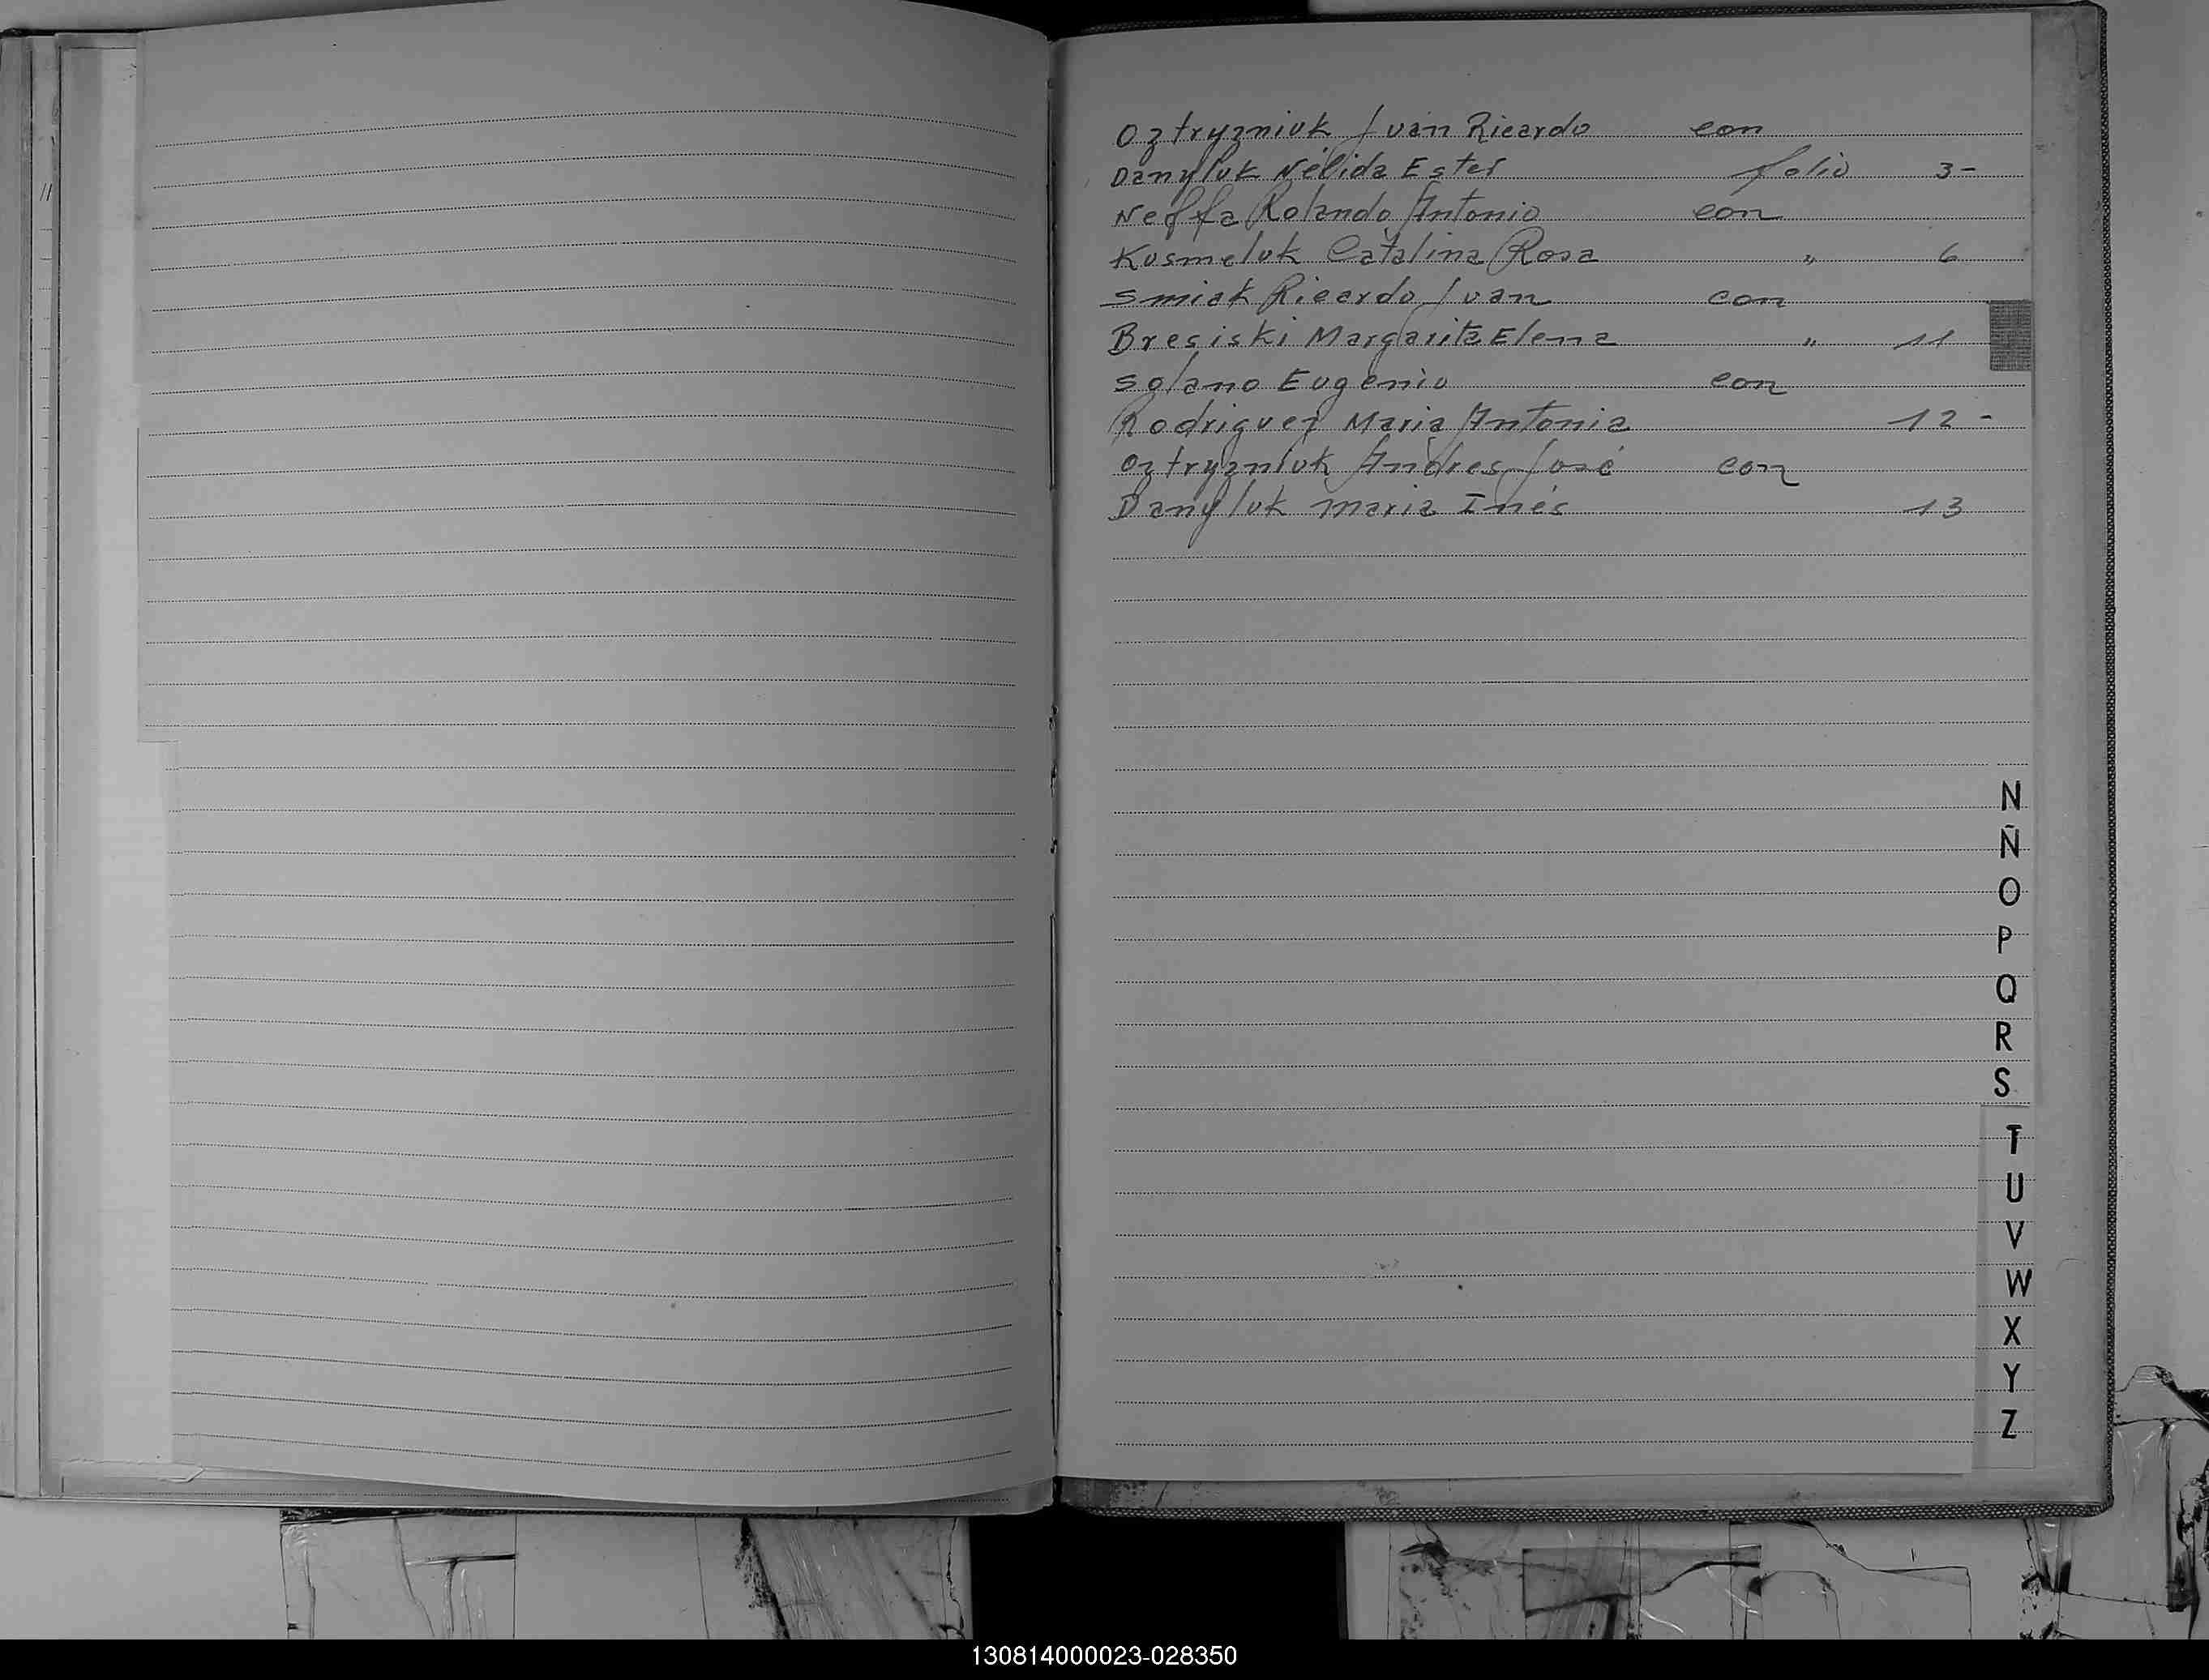 Oztryzniuk Juan Ricardo con
Danyluk Nélida Ester folio 3-
Neffa Rolando Antonio con
Kusmeluk Catalina Rosa " 6
Smiak Ricardo Juan con
Bresiski Margarita Elena " 11
Solano Eugenio con
Rodriguez Maria Antonia 12 -
Oztryzniuk Andres José con
Danyluk Maria Inés 13
N
Ñ
O
P
Q
R
S
T
U
V
W
X
Y
Z
130814000023-028350